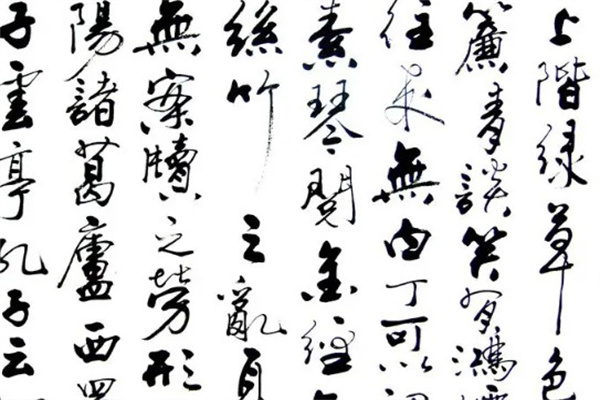 上階緑草色
簾青談笑有鴻
往来無白丁可以
素琴閱金經
絲竹之亂耳
無案牘之勞形
陽諸葛廬西
子雲亭孔子云